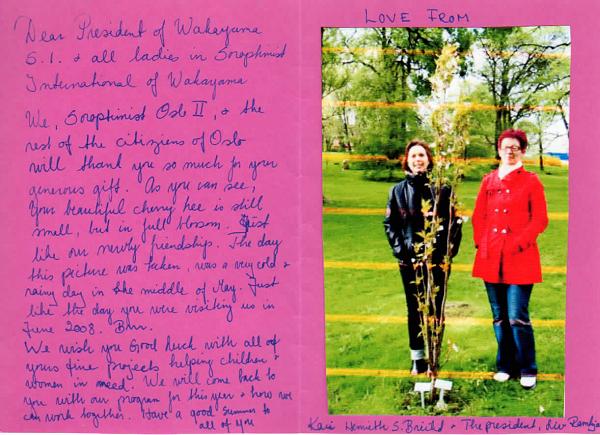 Dear President of Wakayama
S.I. & all ladies in Soroptimist
International of Wakayama
We, Soroptimist Oslo II, & the
rest of the citiziens of Oslo
will thank you so much for your
generous gift. As you can see,
Your beautiful cherry tree is still
small, but in full blossom. Just
like our newly friendship. The day
this picture was taken, was a very cold &
rainy day in the middle of May. Just
like the day you were visiting us in
June 2008. Brrr.
We wish you Good luck with all of
yours fine projects helping children &
women in need. We will come back to
you with our program for this year & how we
can work together. Have a good summer to
all of you
LOVE FROM
Kari S. & The president, Liv